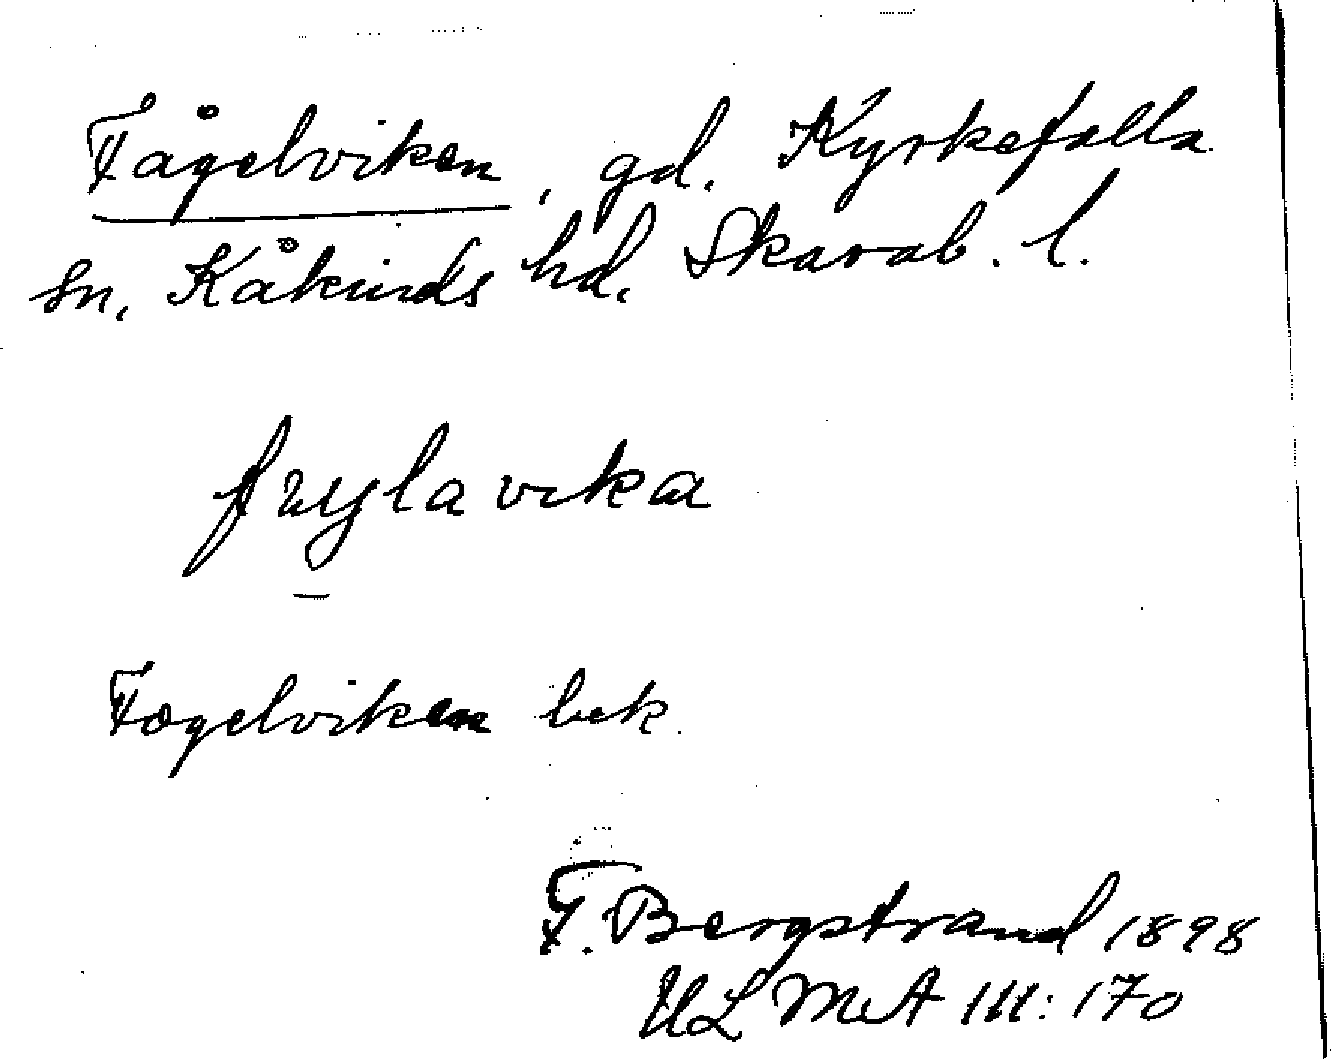 Fågelviken, gd. Kyrkefalla
sn. Kåkinds hd. Skarab. l.
Fogelviken bek.
F. Bergstrand 1898
ULMA 111:170